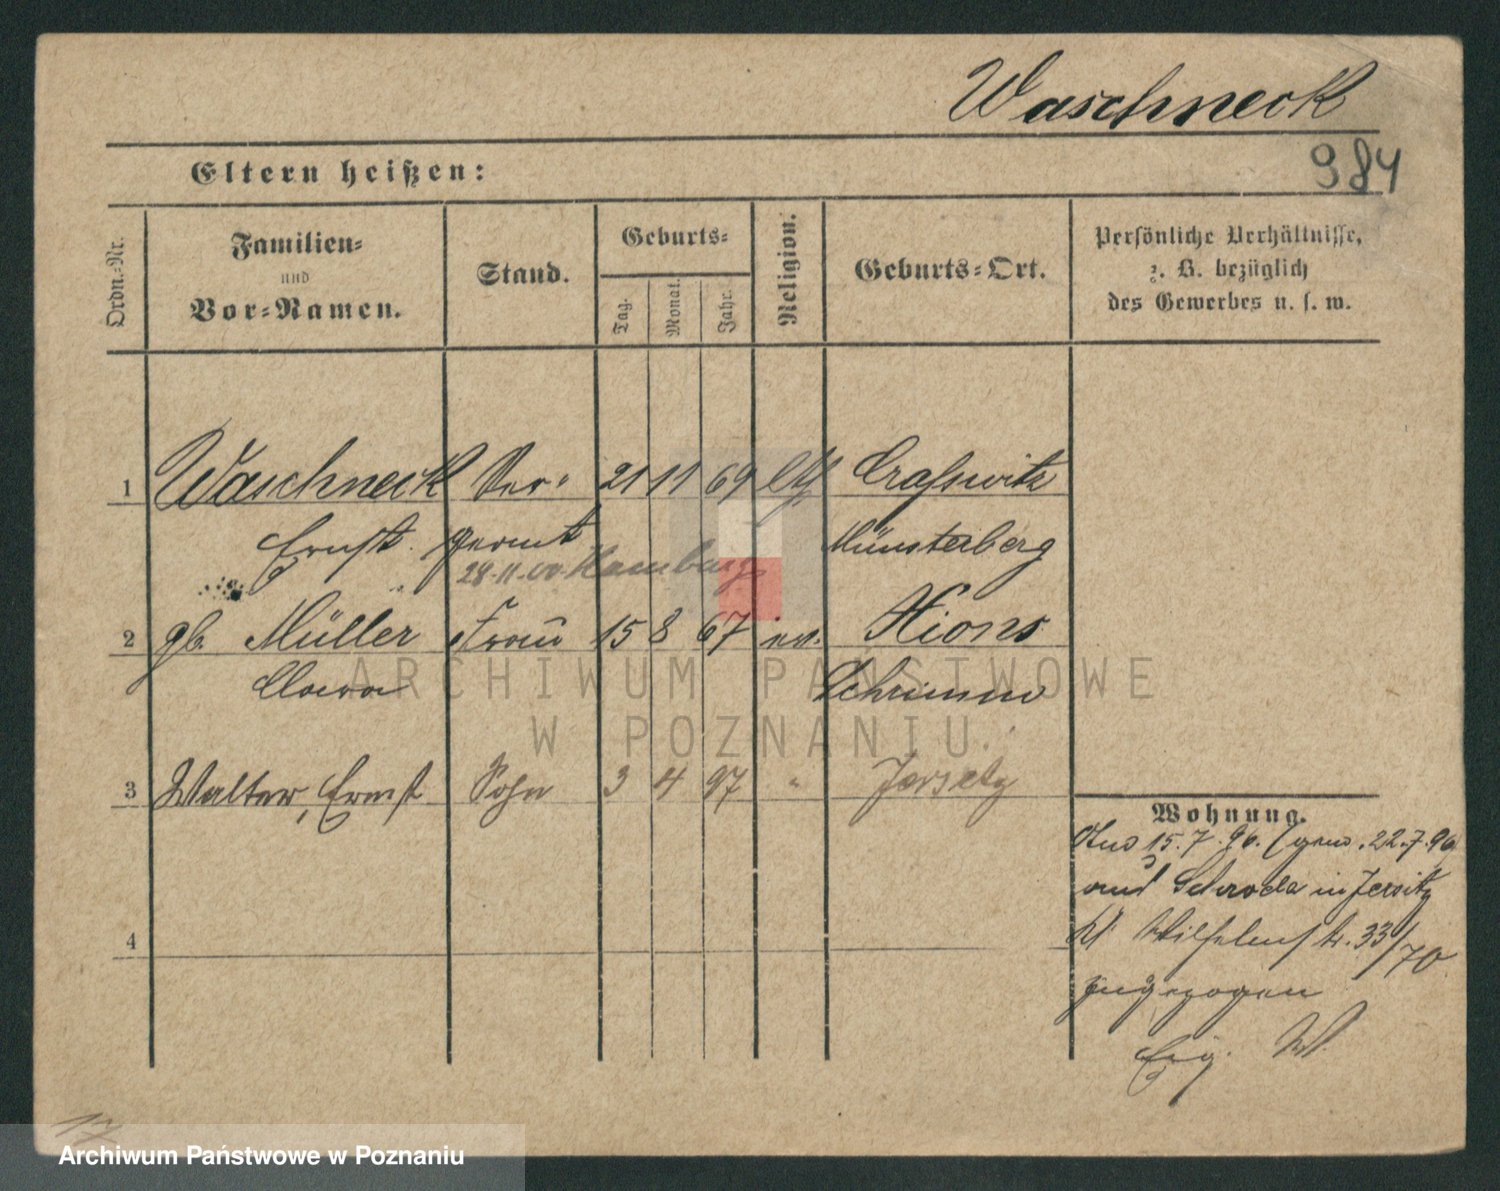 Waschneck
984
Eltern heißen:
Ordn.-Nr.
Familien-
und
Vor-Namen.
Stand.
Geburts-
Tag.
Monat.
Jahr.
Religion.
Geburts-Ort.
Persönliche Verhältnisse,
z. B. bezüglich
des Gewerbes u. s. w.
1 Waschneck Ser- 21 11 69
Ernst geant Münsterberg
28.11.00 Hamburg
2 gb. Müller Frau 15 8 67 ev. Xions
Clara Schrimm
3 Walter, Ernst Sohn 3 4 97 " Jersitz
4
Wohnung.
Aus 15.7.96. 22.7.96
Schroda in Jersitz
Kl. Wilhelmstr. 33/70
zugezogen
17
ARCHIWUM PAŃSTWOWE
W POZNANIU
Archiwum Państwowe w Poznaniu